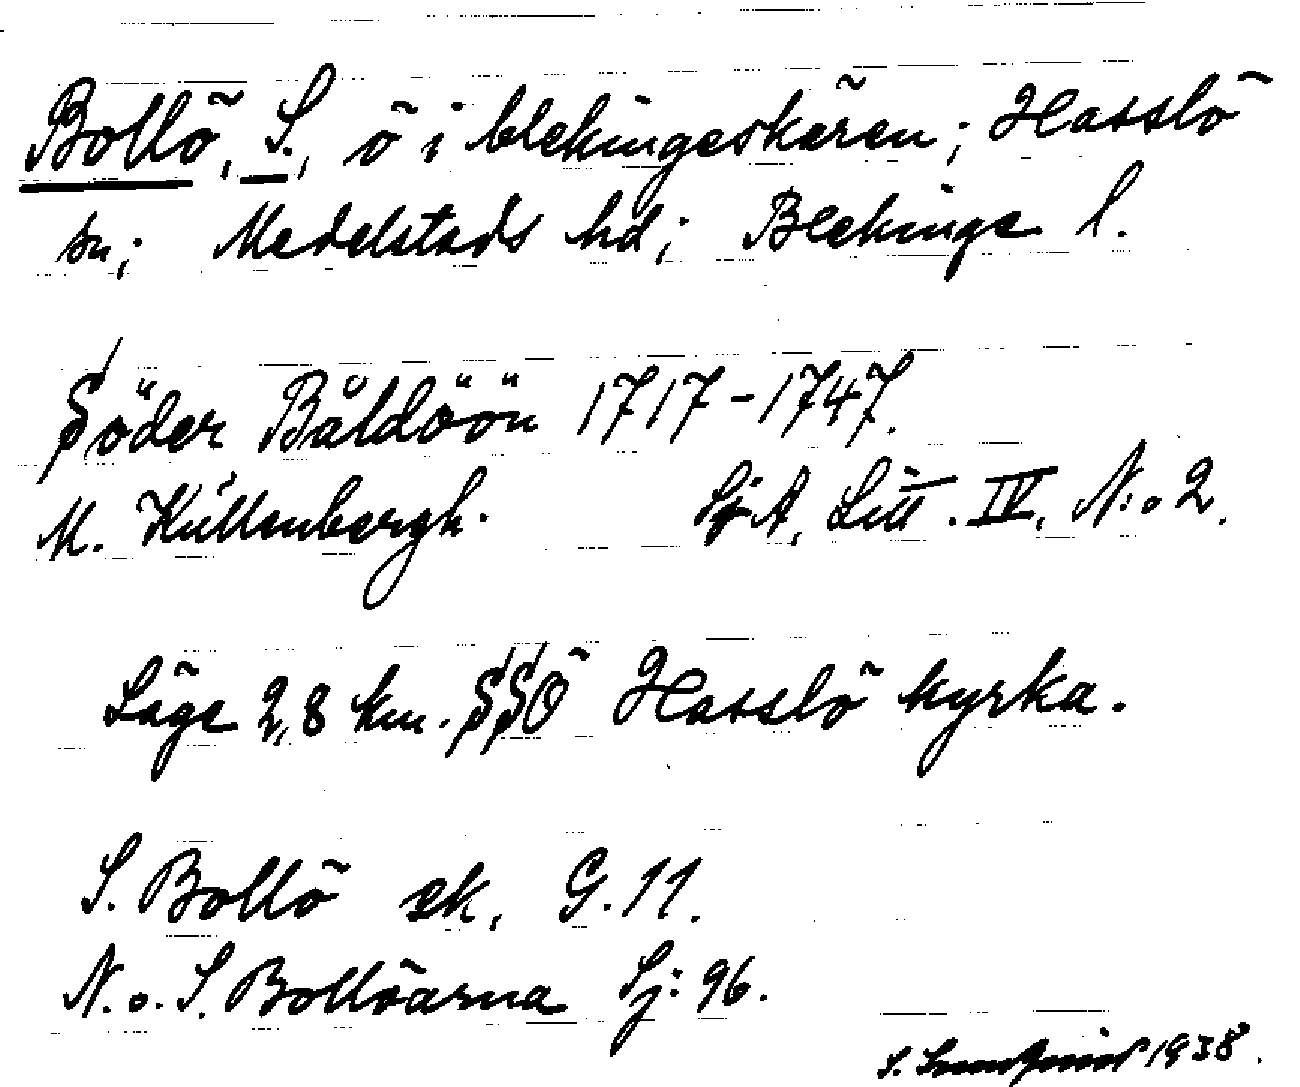 Bollö, S., ö i blekingeskären; Hasslö
sn; Medelstads hd; Blekinge l.
Söder Båldöön 1717-1747.
M. Küllenbergh. SjA, Litt. IV, N:o 2.
Läge 2,8 km. SSÖ Hasslö kyrka.
S. Bollö ek. G. 11.
N. o. S. Bollöarna Sj: 96.
S. 1938.